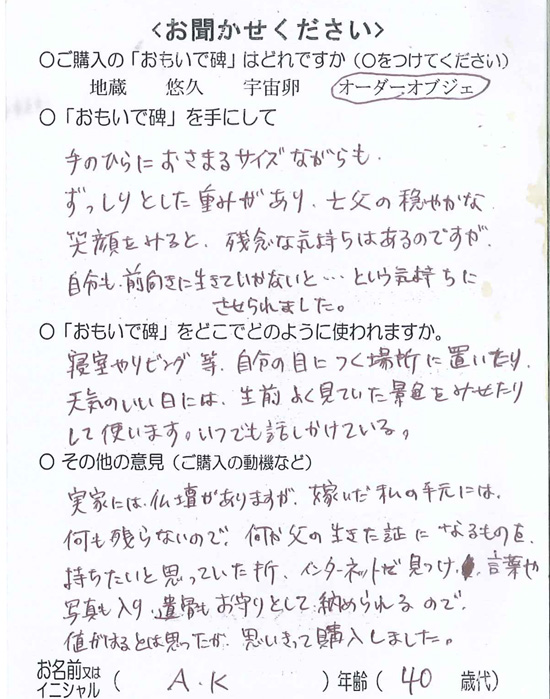 <お聞かせください>
○ご購入の「おもいで碑」はどれですか(○をつけてください)
地蔵 悠久 宇宙卵 オーダーオブジェ
○「おもいで碑」を手にして
手のひらにおさまるサイズながらも、
ずっしりとした重みがあり、亡父の穏やかな
笑顔をみると、残念な気持ちはあるのですが、
自分も、前向きに生きていかないと…という気持ちに
させられました。
○「おもいで碑」をどこでどのように使われますか。
寝室やリビング等、自分の目につく場所に置いたり、
天気のいい日には、生前よく見ていた景色をみせたり
して使います。いつでも話しかけている。
○その他の意見(ご購入の動機など)
実家には、仏壇がありますが、嫁いだ私の手元には、
何も残らないので、何か父の生きた証になるものを、
持ちたいと思っていた折、インターネットで見つけ、言葉や
写真も入り、遺骨もお守りとして納められるので、
値がはるとは思ったが、思いきって購入しました。
お名前又は
イニシャル ( A.K )年齢( 40 歳代)